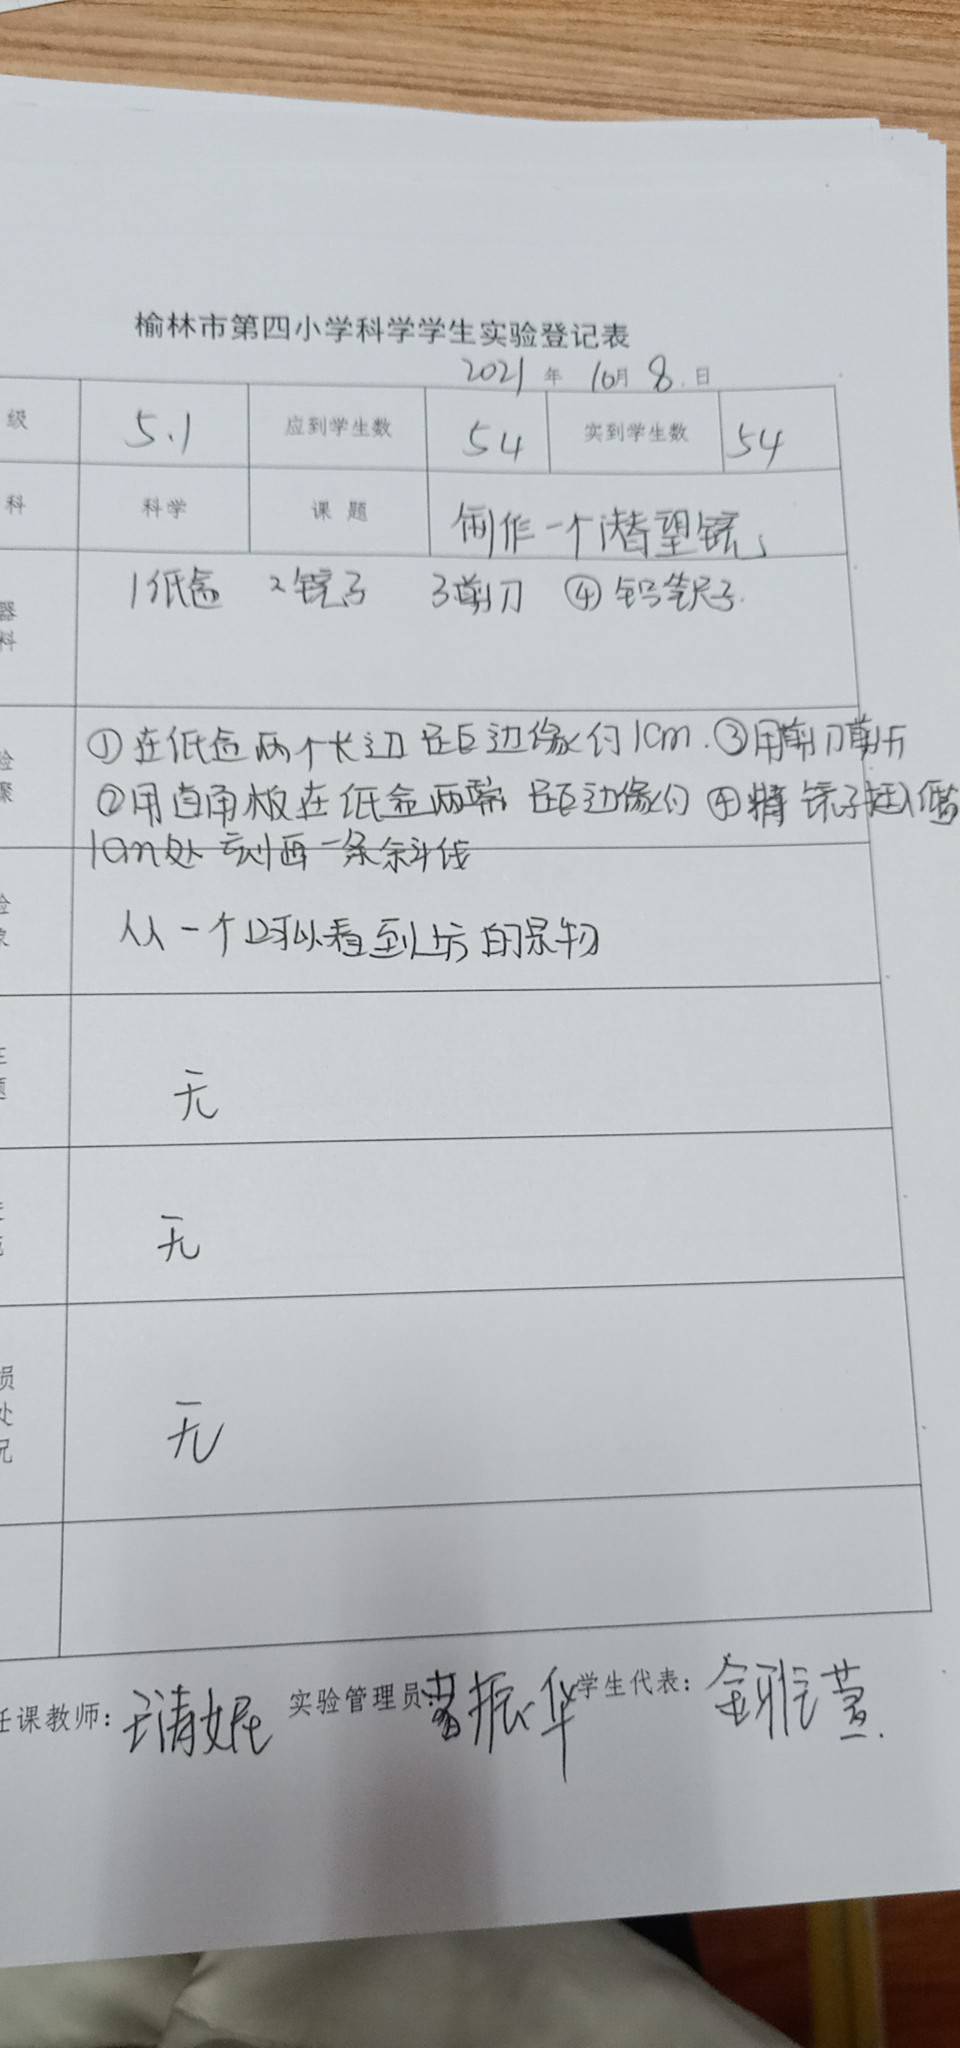 榆林市第四小学科学学生实验登记表
2021年 10月 8日
级 5.1 应到学生数 54 实到学生数 54
科 科学 课题 制作一个潜望镜
器料 1纸盒 2镜子 3剪刀 ④铅笔尺子.
验骤 ①在纸盒两个长边距边缘约1cm. ③用剪刀剪开
②用直角板在纸盒两端距边缘约 ④将镜子插入纸盒
1cm处刻画一条斜线
验象 从一个口可以看到上方的景物
无
无
损处况 无
任课教师: 实验管理员: 振华 学生代表: 金雅萱